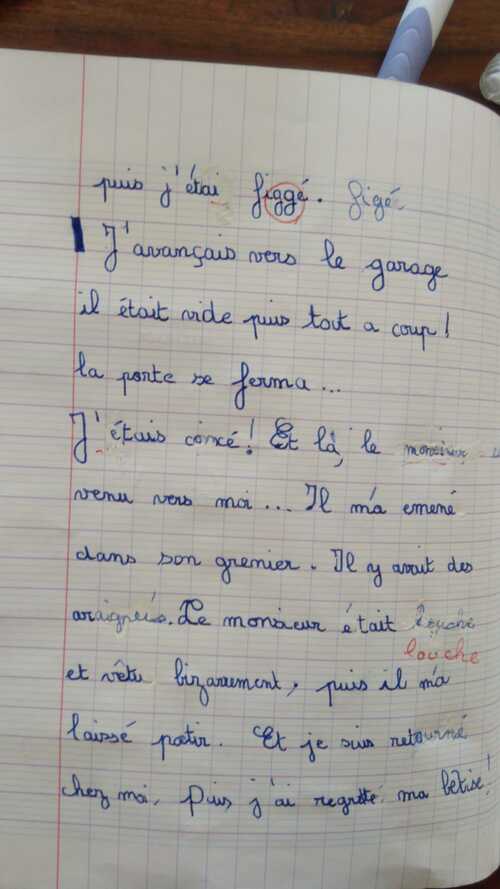 puis j'étai figgé. figé.
J'avançais vers le garage
il était vide puis tout a coup !
la porte se ferma ...
J'étais coincé ! Et là, le monsieur
venu vers moi ... Il m'a emené
dans son grenier. Il y avait des
araignées. Le monsieur était louche
louche
et vêtu bizarrement, puis il m'a
laissé partir. Et je suis retourné
chez moi, Puis j'ai regretté ma bêtise !